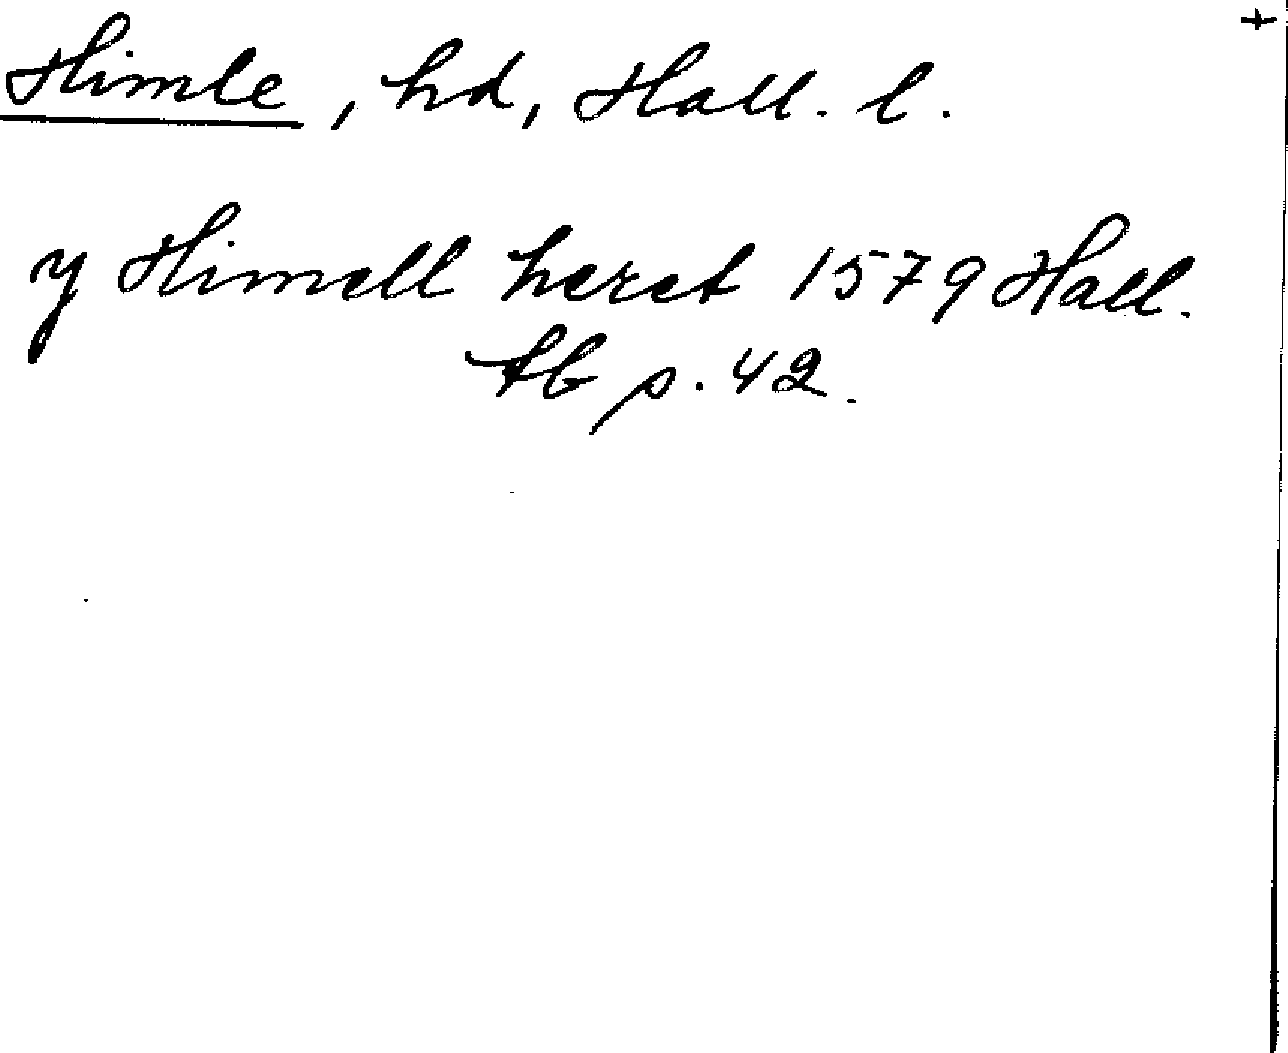 Himle, hd, Hall. l.
y Himell heret 1579 Hall.
tb p. 42.